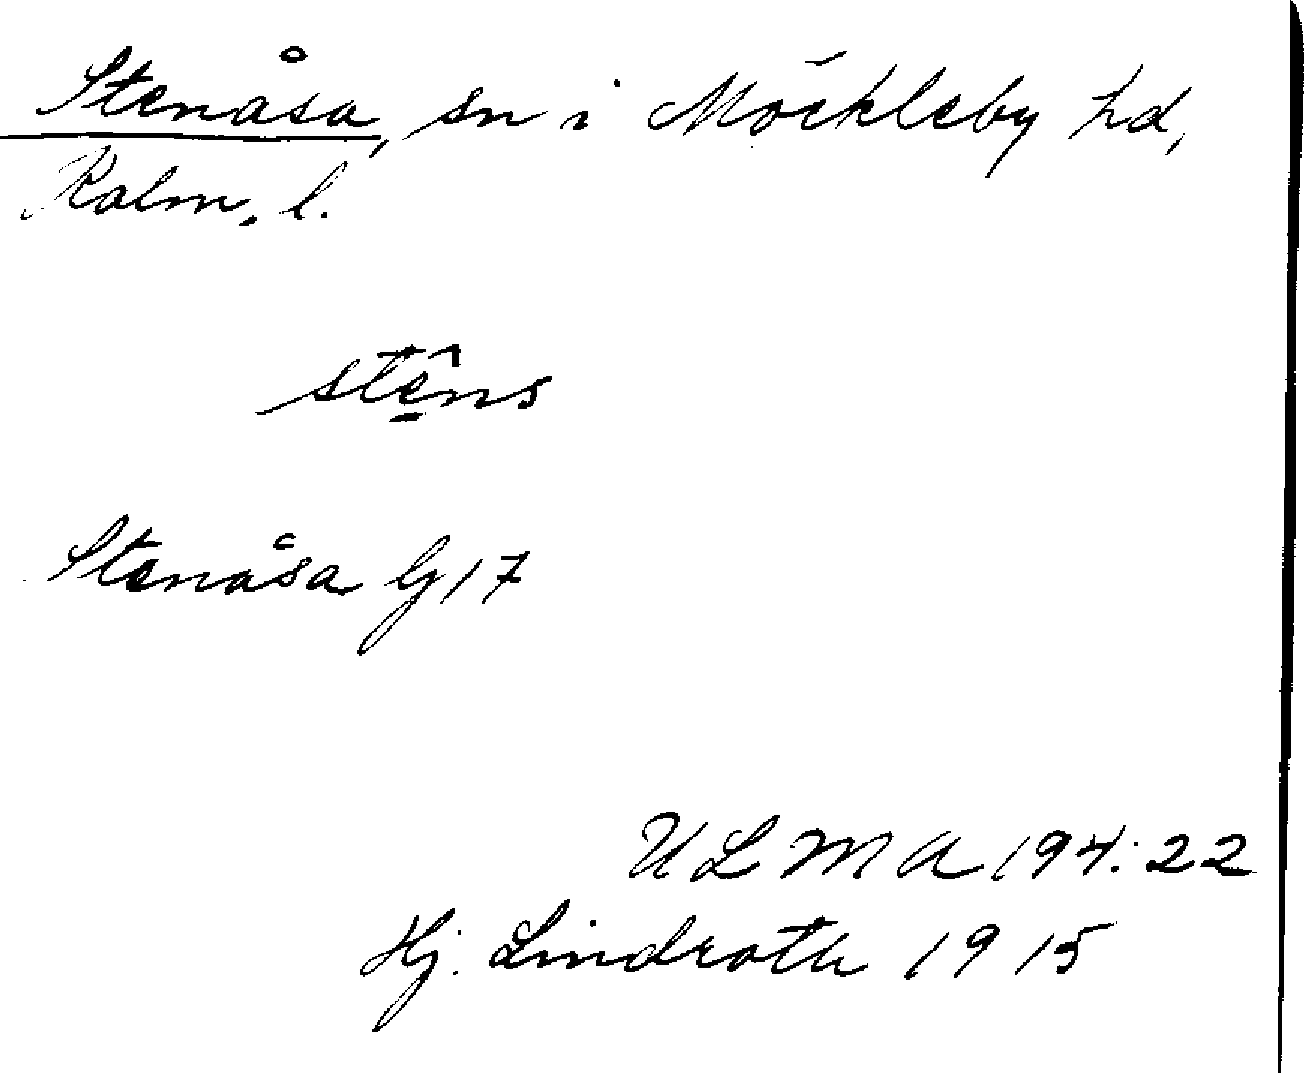 Stenåsa, sn i Möckleby hd,
Kalm. l.
stêns
Stenåsa G 17
ULMA 194:22
Hj. Lindroth 1915